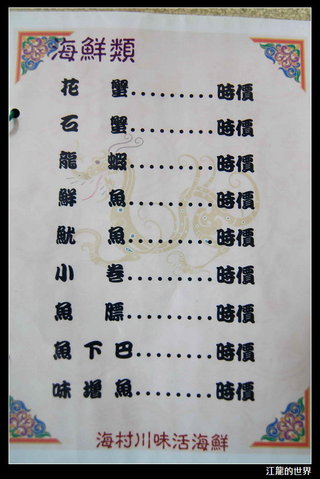 海鮮類
花 蟹.........時價
石 蟹.........時價
龍 蝦.........時價
鮮 魚.........時價
魷 魚.........時價
小 卷.........時價
魚 膘.........時價
魚下巴.........時價
味增魚.........時價
海村川味活海鮮
江龍的世界